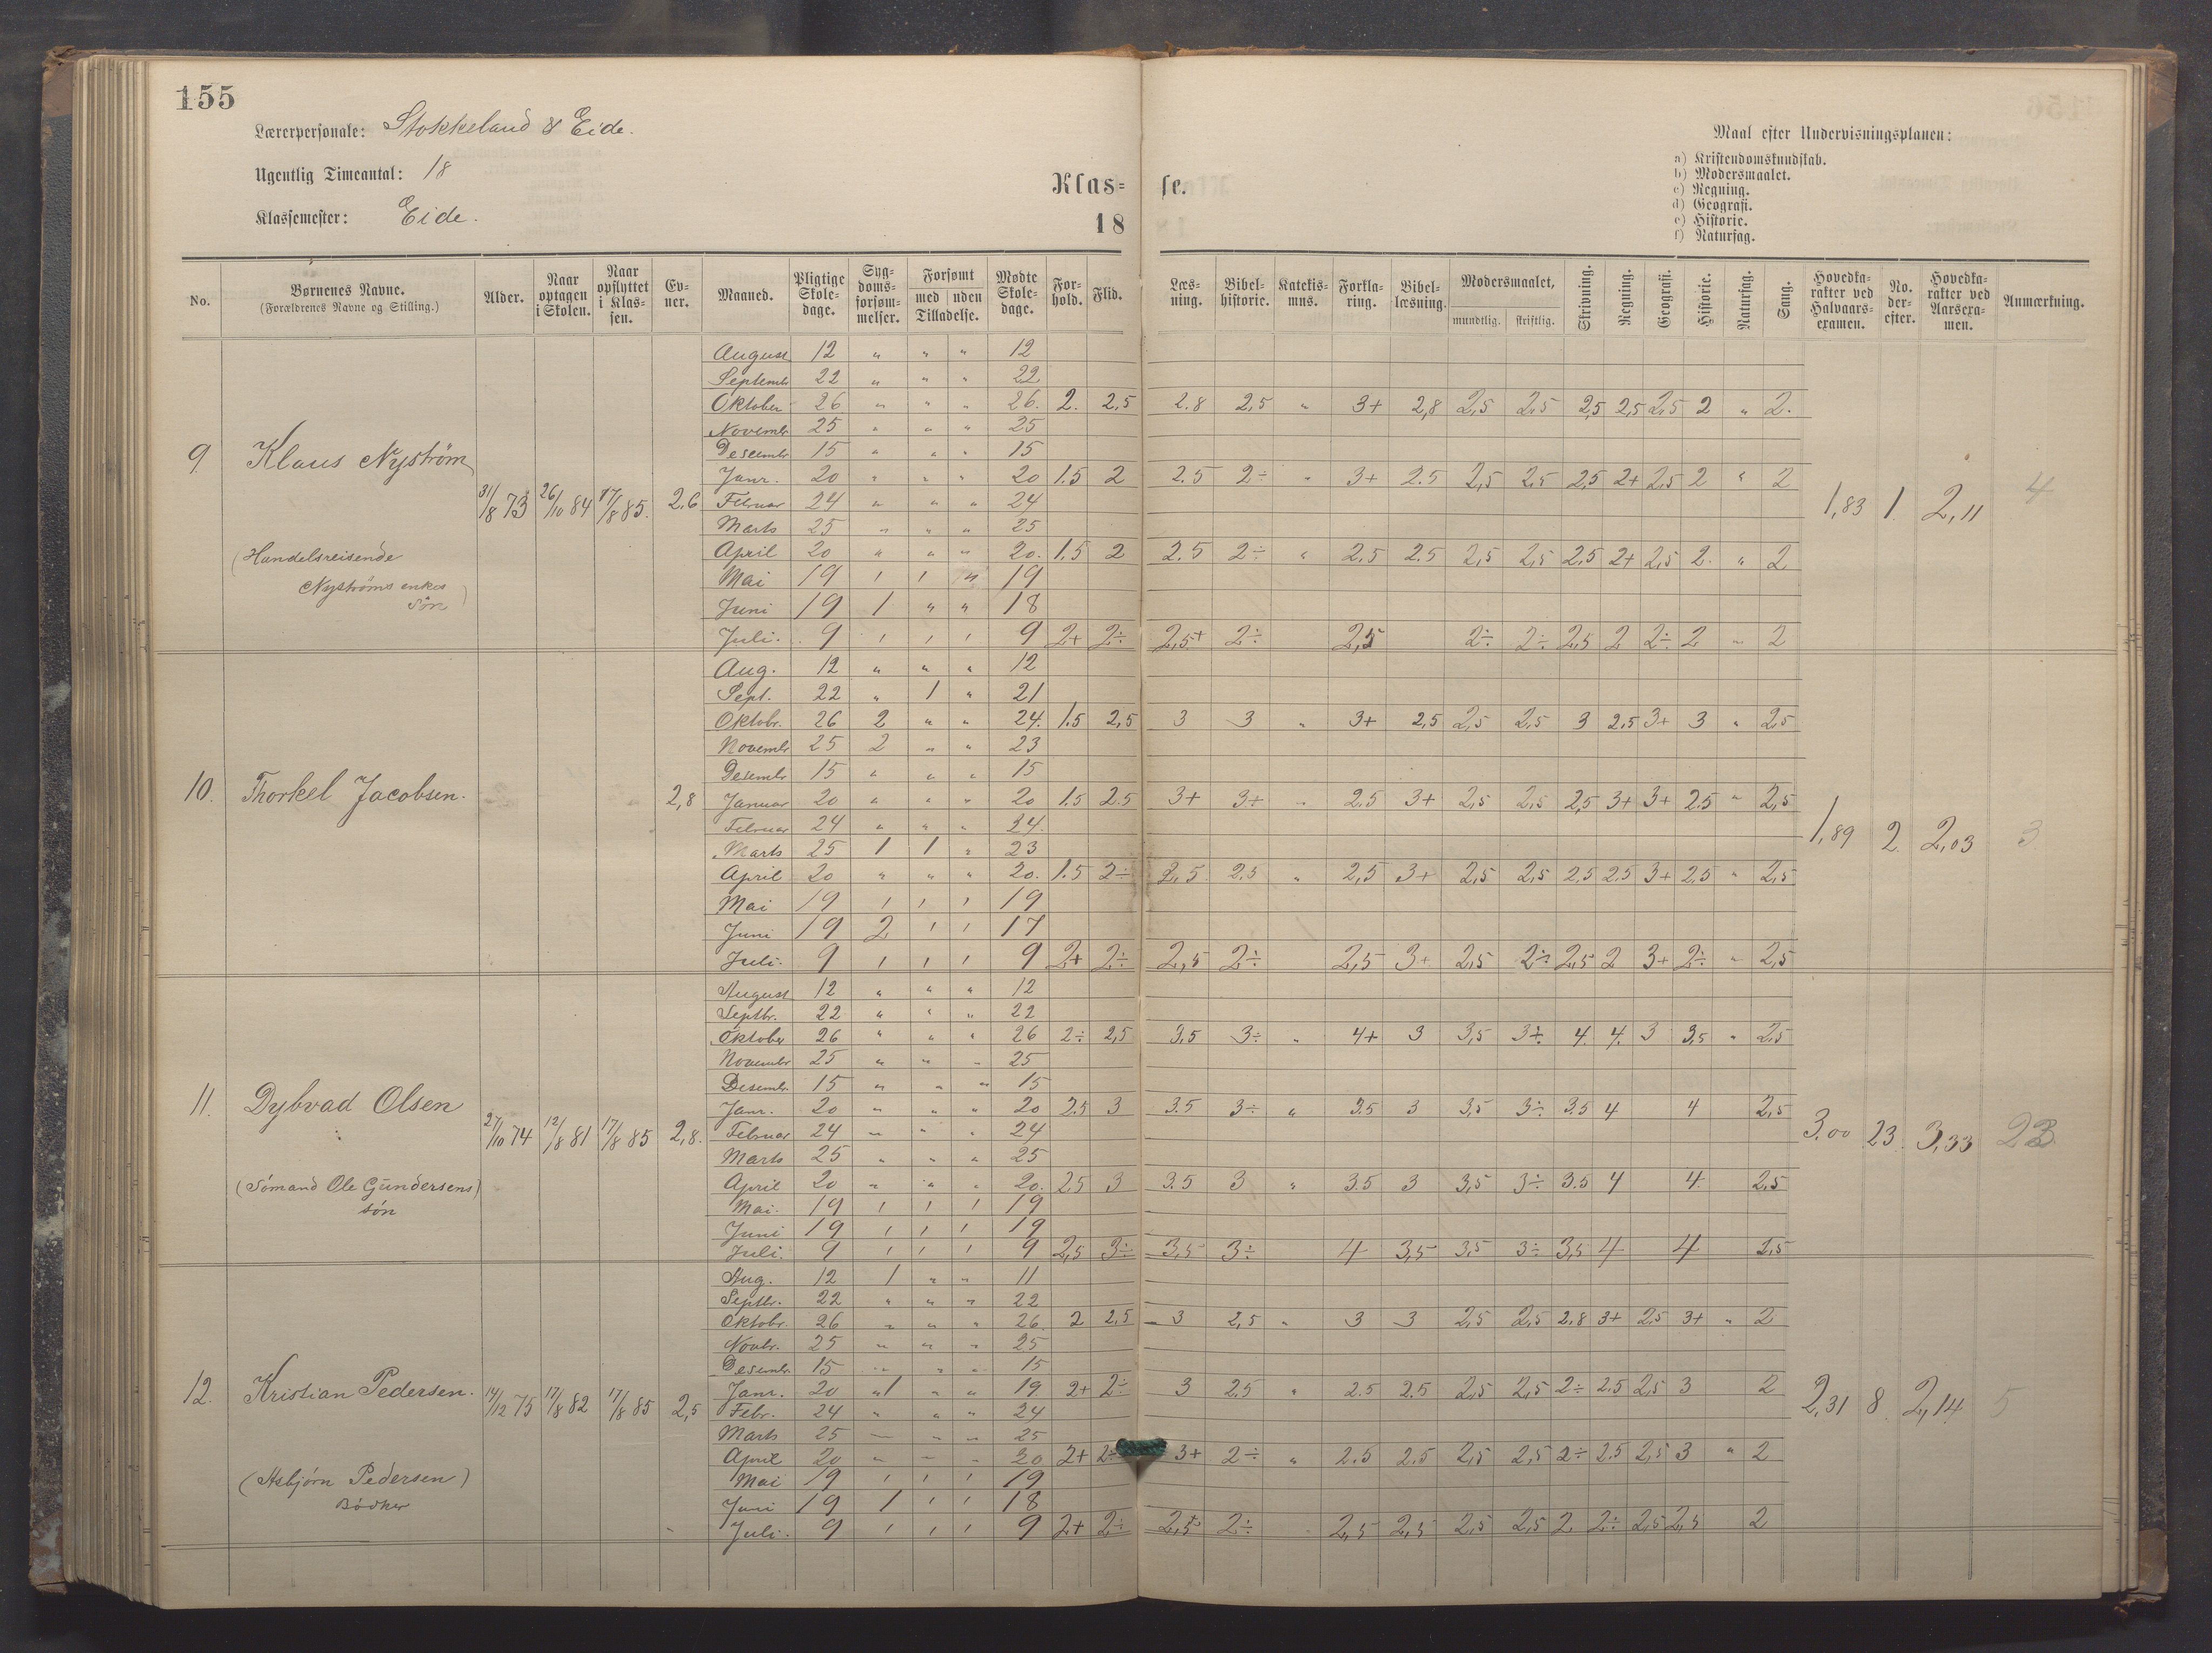 155
Lærerpersonale: Stokkeland & Eide.
Ugentlig Timeantal: 18
Klassemester: Eide.
Klas= se.
18
Maal efter Undervisningsplanen:
a) Kristendomskundskab.
b) Modersmaalet.
c) Regning.
d) Geografi.
e) Historie.
f) Naturfag.
No. Børnenes Navne. (Forældrenes Navne og Stilling.) Alder. Naar optagen i Skolen. Naar opflyttet i Klassen. Evner. Maaned. Pligtige Skoledage. Sygdomsforsømmelser. Forsømt med uden Tilladelse. Mødte Skoledage. Forhold. Flid. Læsning. Bibelhistorie. Katekismus. Forklaring. Bibellæsning. Modersmaalet, mundtlig. skriftlig. Skrivning. Regning. Geografi. Historie. Naturfag. Sang. Hovedkarakter ved Halvaarsexamen. No. derefter. Hovedkarakter ved Aarsexamen. Anmærkning.
August 12 " " " 12
Septembr 22 " " " 22
Oktober 26 " " " 26. 2. 2,5 2.8 2,5 " 3+ 2,8 2,5 2,5 2,5 2,5 2,5 2 " 2.
Novembr 25 " " " 25
Descembr 15 " " " 15
9. Klaus Nyström 31/8 73 26/10 84 17/8 85. 2,6 1,83 1. 2,11 4
Janr. 20 " " " 20 1.5 2 2.5 2÷ " 3+ 2.5 2,5 2,5 2,5 2+ 2,5 2 " 2
Februar 24 " " " 24
Marts 25 " " " 25
April 20 " " " 20. 1.5 2 2.5 2÷ " 2.5 2.5 2,5 2,5 2.5 2+ 2,5 2. " 2
(Handelsreisende
Nyströms enkes
Søn)
Mai 19 ' ' " 19
Juni 19 1 " " 18
Juli. 9 ' ' ' 9 2+ 2÷ 2,5+ 2÷ 2,5 2÷ 2÷ 2,5 2 2÷ 2 " 2
Aug. 12 " " " 12
Sept. 22 " 1 " 21
Oktobr. 26 2 " " 24. 1.5 2,5 3 3 " 3+ 2,5 2,5 2,5 3 2.5 3+ 3 " 2,5
Novembr 25 2 " " 23
Desembr 15 " " " 15
10. Thorkel Jacobsen. 2,8 1,89 2 2,03 3
Januar 20 " " " 20 1.5 2.5 3+ 3+ " 2.5 3+ 2,5 2,5 2,5 3+ 3+ 2.5 " 2,5
Februar 24 " " " 24.
Marts 25 1 1 " 23
April 20 " " " 20. 1.5 2÷ 2,5 2.5 " 2,5 3+ 2,5 2,5 2.5 2.5 3+ 2.5 " 2,5
Mai 19 ' ' ' 19
Juni 19 2 ' ' 17
Juli. 9 ' ' ' 9 2+ 2÷ 2,5 2÷ 2,5 3+ 2,5 2÷ 2,5 2 3+ 2÷ " 2,5
August 12 " " " 12
Septbr. 22 " " " 22
Oktober 26 " " " 26 2÷ 2,5 3.5 3÷ " 4+ 3 3,5 3÷ 4. 4. 3 3,5 " 2,5
Novembr 25 " " " 25
Desembr. 15 " " " 15
11. Dybvad Olsen 27/10 74 12/8 81 17/8 85 2,8. 3.00 23 3,33 23.
Janr. 20 " " " 20 2.5 3 3.5 3÷ " 3.5 3 3,5 3÷ 3.5 4 4 2,5
Februar 24 " " " 24
Marts 25 " " " 25
(Sömand Ole Gundersens
sön)
April 20 " " " 20. 2.5 3 3.5 3 " 3.5 3 3,5 3÷ 3.5 4 4. 2.5
Mai. 19 ' ' ' 19
Juni 19 ' ' ' 19
Juli. 9 ' ' ' 9 2,5 3÷ 3,5 3÷ 4 3,5 3,5 3÷ 3,5 4 4 2,5
Aug. 12 1 " " 11
Septbr. 22 " " " 22
Oktobr. 26 " " " 26. 2 2,5 3 2,5 " 3 3 2,5 2,5 2,8 3+ 2,5 3+ " 2
Novbr. 25 " " " 25
Desembr. 15 " " " 15
12. Kristian Pedersen. 14/12 75 17/8 82 17/8 85 2,5 2,31 8. 2,14 5
Janr. 20 "1 " " 19. 2+ 2÷ 3 2.5 " 2.5 2.5 2,5 2,5 2÷ 2.5 2,5 3 2
Febr. 24 " " " 24
Marts 25 " " " 25
April 20 " " " 20 2+ 2÷ 3+ 2÷ " 2.5 2.5 2,5 2,5 2÷ 2.5 2,5 3 " 2
(Asbjörn Pedersen)
Bödker
Mai 19 ' ' ' 19
Juni 19 1 ' ' 18
Juli. 9 ' ' ' 9 2+ 2÷ 2,5+ 2÷ 2,5 2,5 2,5 2,5 2 2÷ 2,5 2,5 2